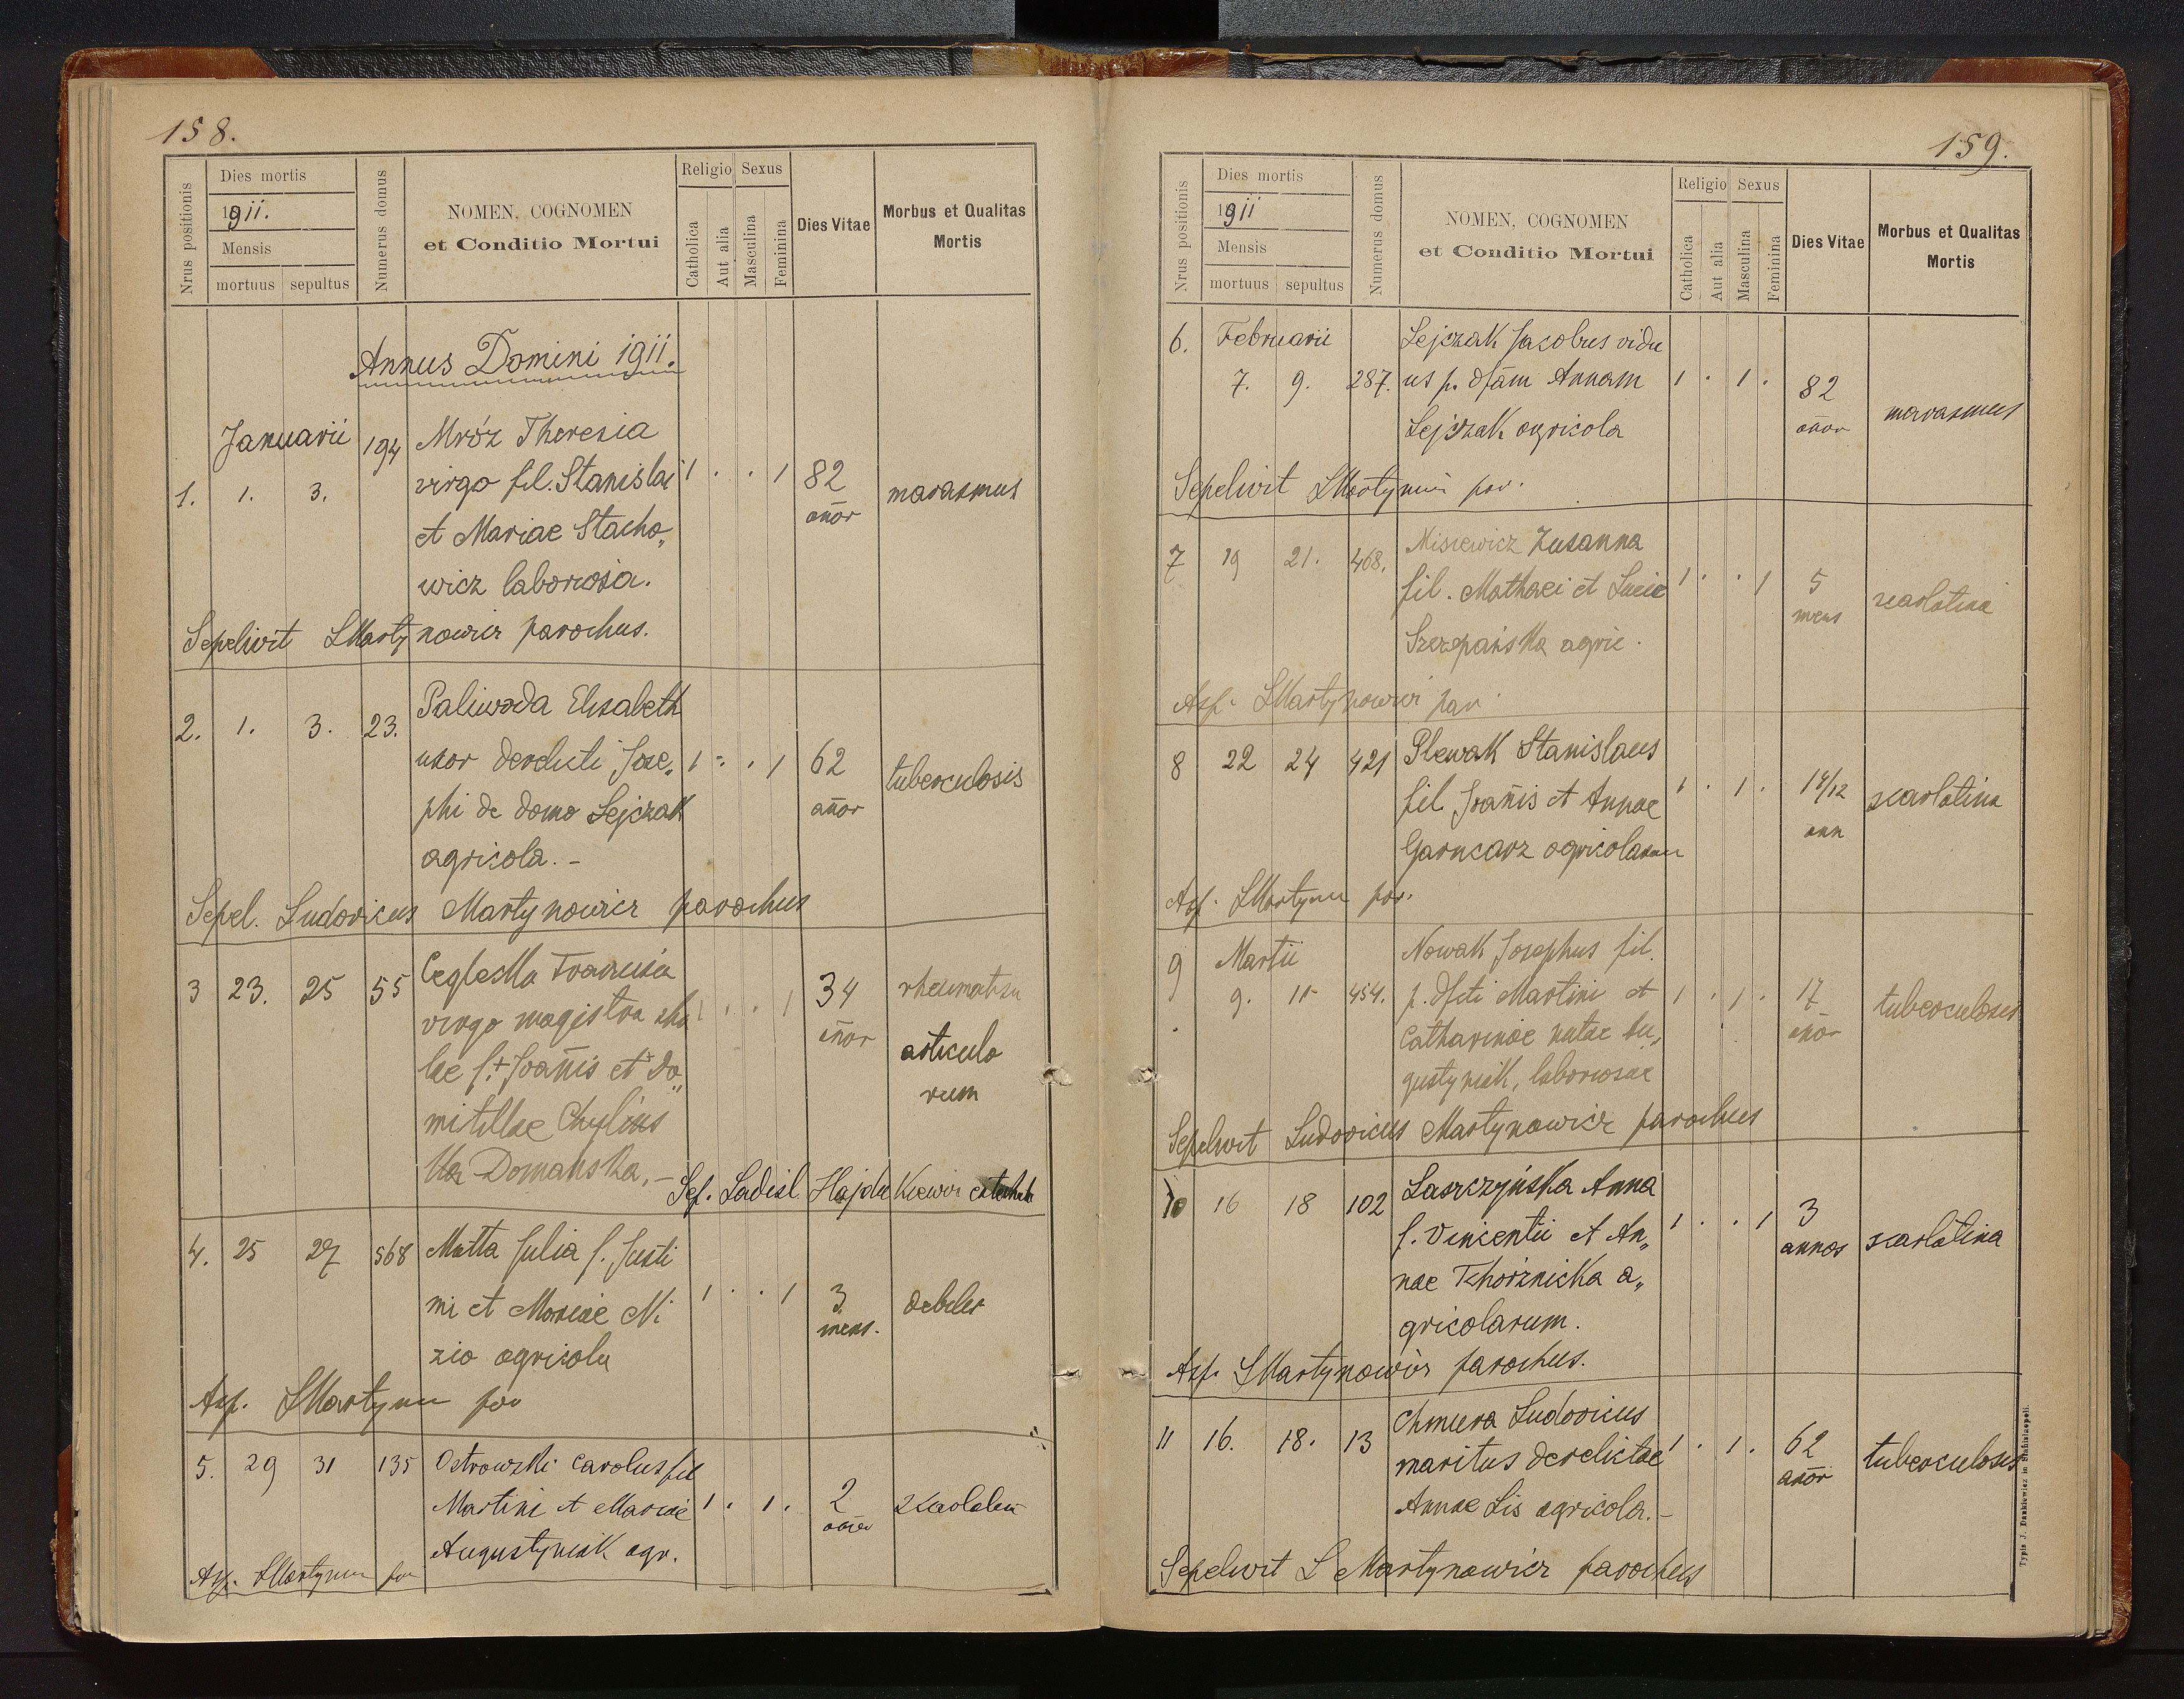 158.
Nrus positionis
Dies mortis
1911.
Mensis
mortuus sepultus
Numerus domus
NOMEN, COGNOMEN
et Conditio Mortui
Religio
Catholica
Aut alia
Sexus
Masculina
Feminina
Dies Vitae
Morbus et Qualitas
Mortis
Annus Domini 1911.
Januarii 194 Mróz Theresia
1. 1. 3. virgo fil. Stanislai 1 . . 1 82 marasmus
et Mariae Stacho„ añor
wicz laboriosa.
Sepelivit LMartynowicz parochus.
2. 1. 3. 23. Paliwoda Elisabeth
uxor derelicti Jose„ 1 . . 1 62 tuberculosis
phi de domo Lejczak añor
agricola. -
Sepel. Ludovicus Martynowicz parochus
3 23. 25 55 Ceglecka Francisca 34
virgo magistra scho 1 . . 1 añor
lae f. + Joañis et Do„ articulo
mitillae Chylins rum
ka Domanska. -
Sep. Ladisl Hajdukiewicz
4. 25 27 568 Matta Julia f. Justi
ni et Mariae Ni 1 . . 1 3 debilit
zio agricola mens.
Asp. LMartynow par
5. 29 31 135 Ostrowski Carolus fil
Martini et Mariae 1 . 1 . 2
Augustyniak agr.
Asp. LMartynow par
159.
Nrus positionis
Dies mortis
1911
Mensis
mortuus sepultus
Numerus domus
NOMEN, COGNOMEN
et Conditio Mortui
Religio
Catholica
Aut alia
Sexus
Masculina
Feminina
Dies Vitae
Morbus et Qualitas
Mortis
6. Februarii Lejczak Jacobus vidu
7. 9. 287. us p. dfām Annam 1 . 1 . 82 marasmus
Lejczak agricola añor
Sepelivit LMartynow par.
7 19 21. 468. Misiewicz Zusanna
fil. Mathaei et Luciae 1 . . 1 5 scarlatina
Szczepańska agric. mens
Asp. LMartynowicz par.
8 22 24 421 Plewak Stanislaus
fil Joañis et Annae 1 . 1 . scarlatina
Garncarz agricolarum ann
Asp. LMartynow par.
9 Martii Nowak Josephus fil.
9. 11 454. p. dfcti Martini et 1 . 1 . 17 tuberculosis
Catharinae natae Au„ añor
gustyniak, laboriosae
Sepelivit Ludovicus Martynowicz parochus
10 16 18 102 Laszczyńska Anna
f. Vincentii et An„ 1 . . 1 3 scarlatina
nae Tchórznicka a„ annos
gricolarum.
Asp. LMartynowicz parochus.
11 16. 18. 13 Chmura Ludovicus
maritus derelictae 1 . 1 . 62 tuberculosis
Annae Lis agricola. - añor
Sepelivit L Martynowicz parochus
Typis J. Dankiewicz in Stanislaopoli.